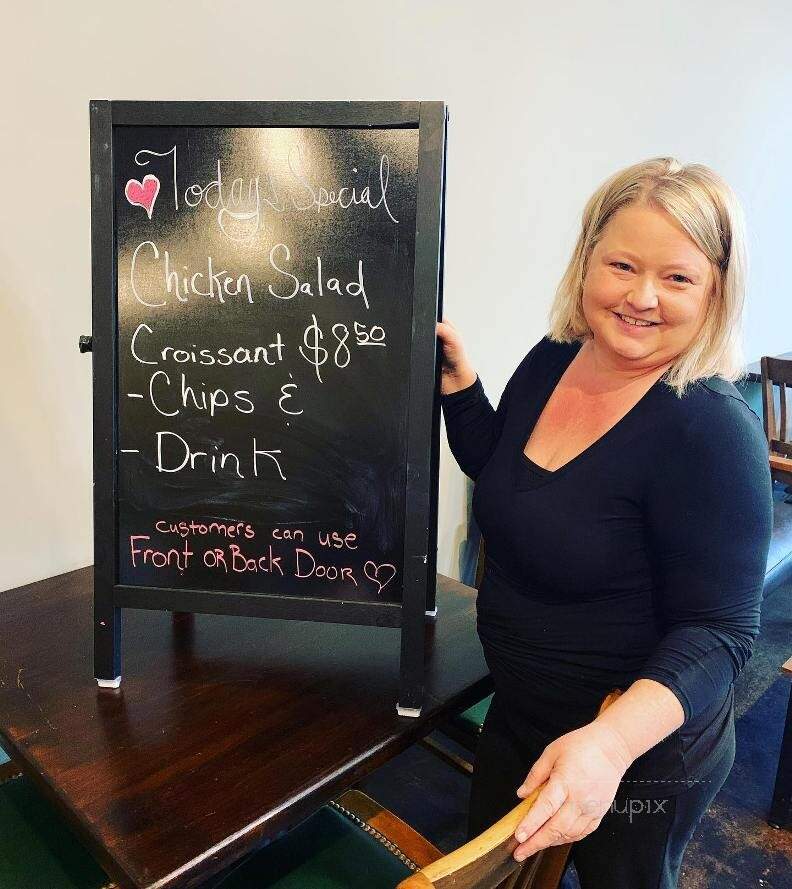 Today's Special
Chicken Salad
Croissant $8 50
- Chips &
- Drink
customers can use
Front OR Back Door